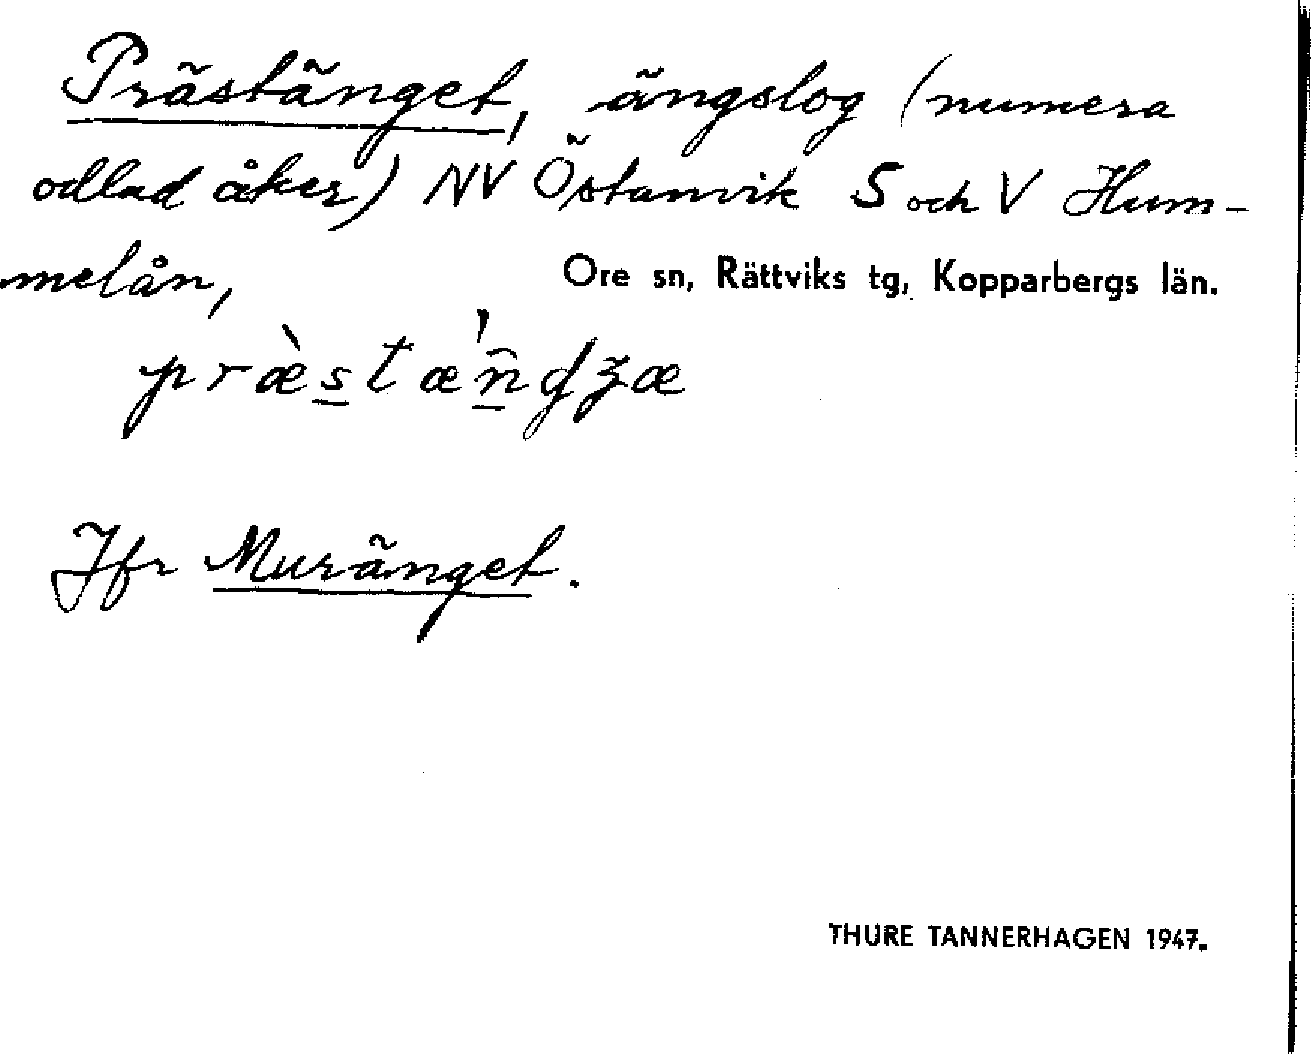 Prästänget, ängslog (numera
odlad åker) NV Östanvik S och V Hum-
melån, Ore sn, Rättviks tg, Kopparbergs län.
præ̀s̲tæ'n̲̂dʒæ
Jfr Muränget.
THURE TANNERHAGEN 1947.